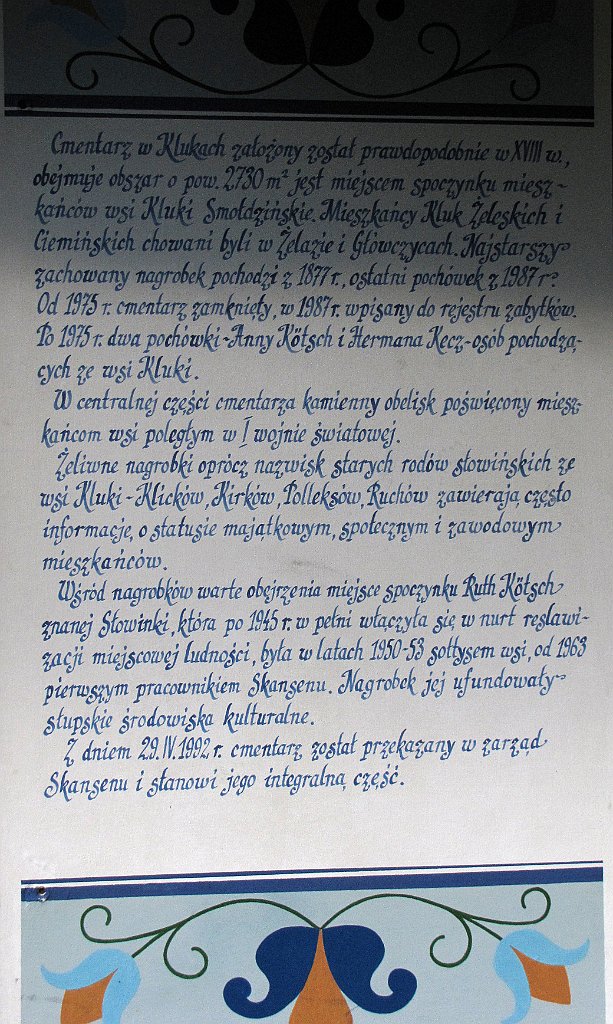 Cmentarz w Klukach założony został prawdopodobnie w XVIII w.,
obejmuje obszar o pow. 2.730 m² jest miejscem spoczynku miesz-
kańców wsi Kluki Smołdzińskie. Mieszkańcy Kluk Żeleskich i
Ciemińskich chowani byli w Żelazie i Główczycach. Najstarszy
zachowany nagrobek pochodzi z 1877 r., ostatni pochówek z 1987 r.
Od 1975 r. cmentarz zamknięty, w 1987 r. wpisany do rejestru zabytków.
Po 1975 r. dwa pochówki - Anny Kötsch i Hermana Kecz - osób pochodzą-
cych ze wsi Kluki.
W centralnej części cmentarza kamienny obelisk poświęcony miesz-
kańcom wsi poległym w I wojnie światowej.
Żeliwne nagrobki oprócz nazwisk starych rodów słowińskich ze
wsi Kluki - Klicków, Kirków, Polleksów, Ruchów zawierają często
informację o statusie majątkowym, społecznym i zawodowym
mieszkańców.
Wśród nagrobków warte obejrzenia miejsce spoczynku Ruth Kötsch
znanej Słowinki, która po 1945 r. w pełni włączyła się w nurt reslawi-
zacji miejscowej ludności, była w latach 1950-53 sołtysem wsi, od 1963
pierwszym pracownikiem Skansenu. Nagrobek jej ufundowały
słupskie środowiska kulturalne.
Z dniem 29.IV.1992 r. cmentarz został przekazany w zarząd
Skansenu i stanowi jego integralną część.